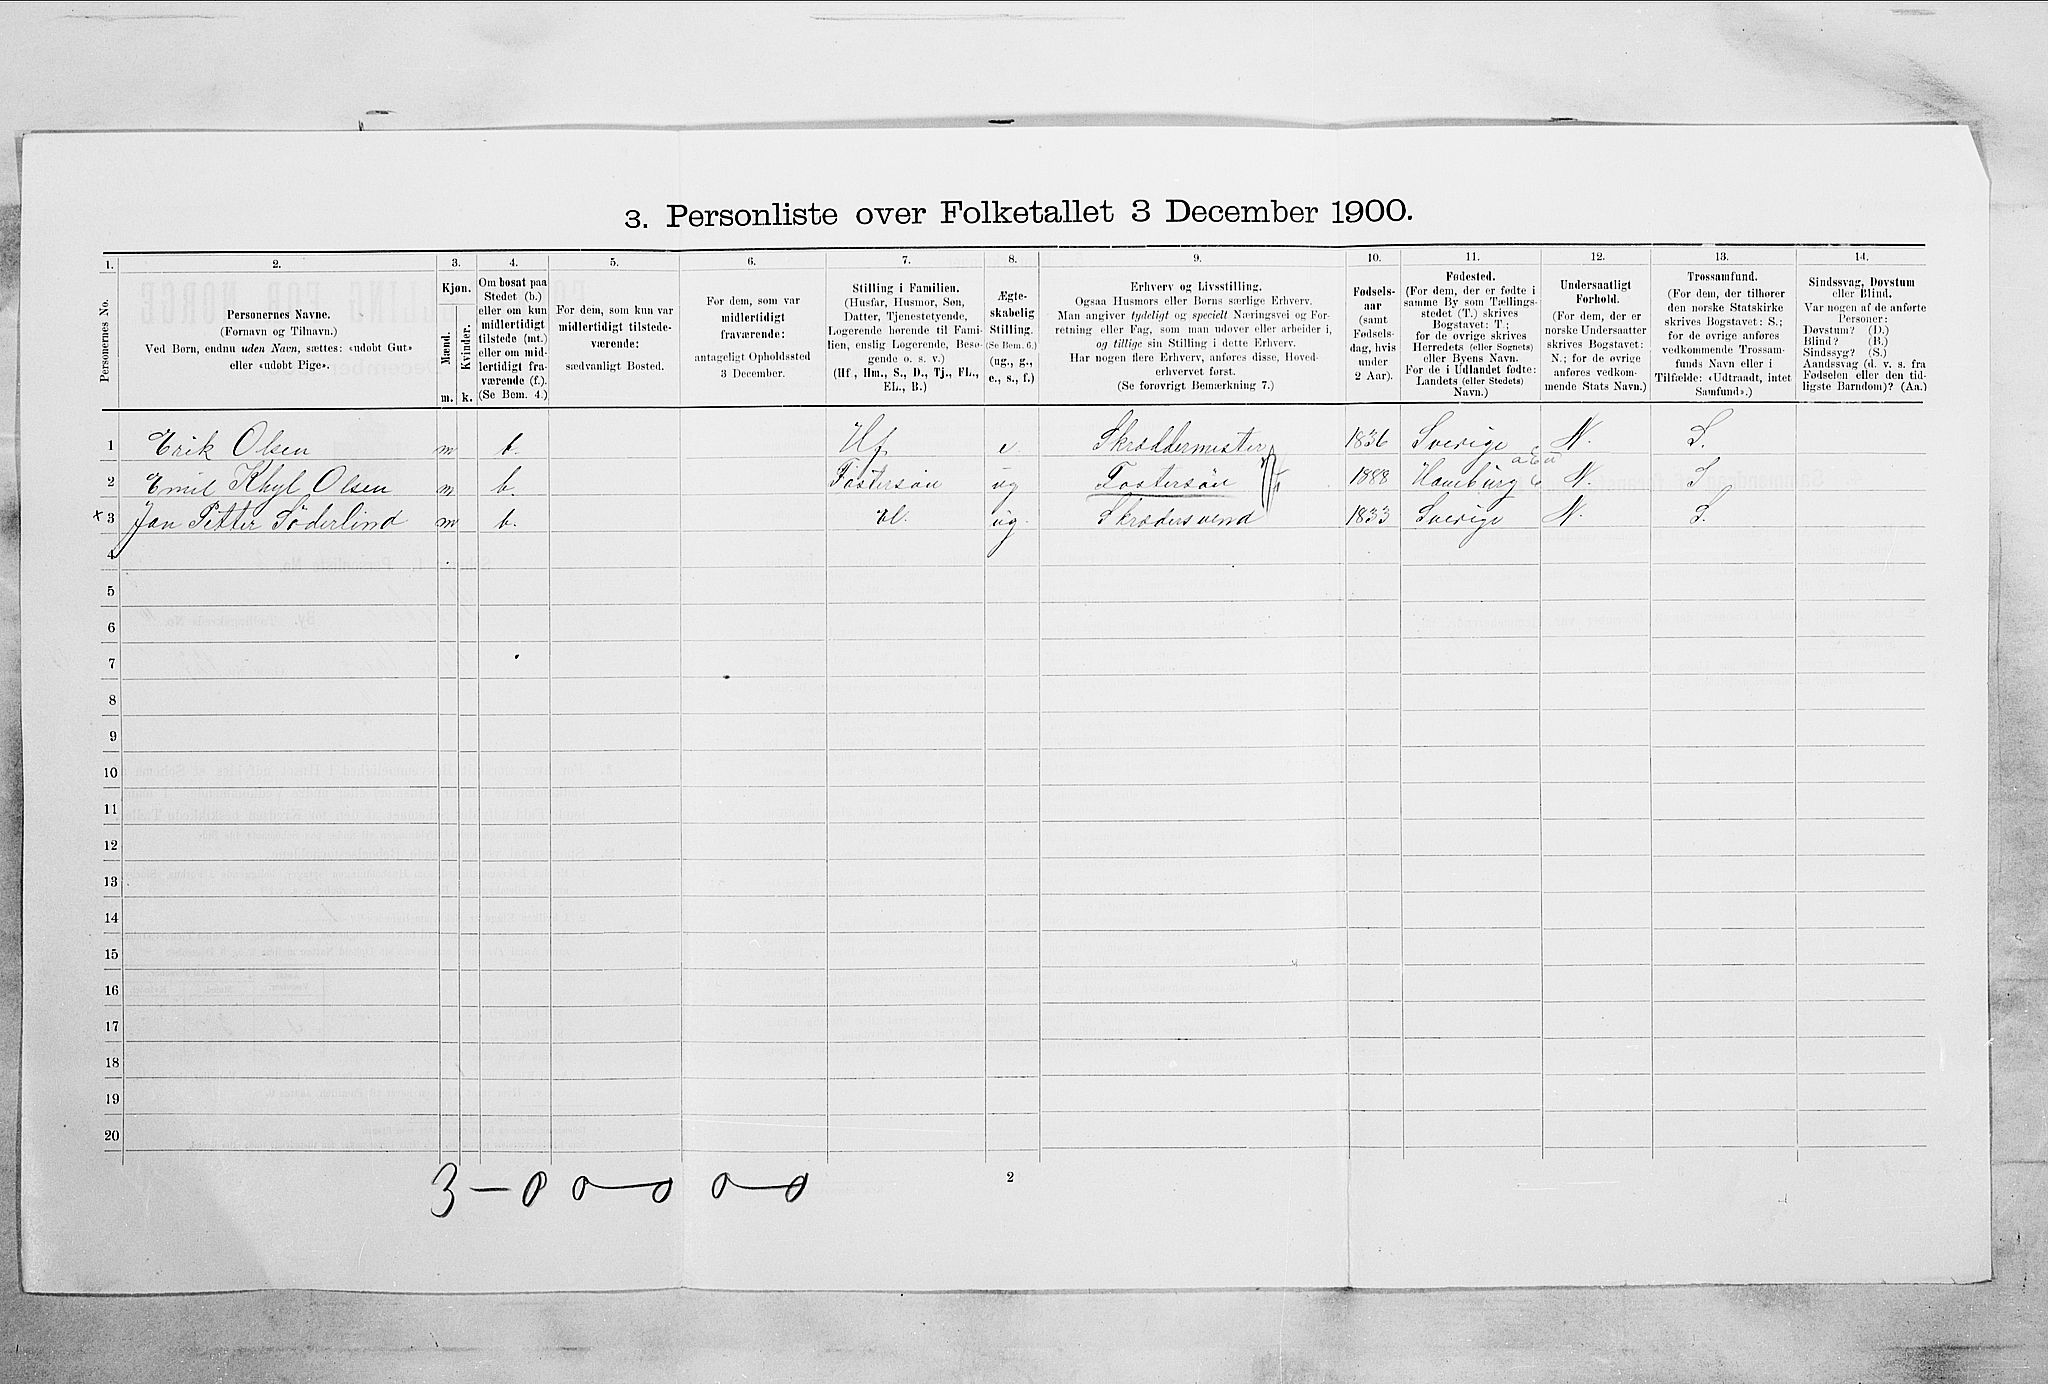 3. Personliste over Folketallet 3 December 1900.
1. 2. 3. 4. 5. 6. 7. 8. 9. 10. 11. 12. 13. 14.
Personernes No.
Personernes Navne.
(Fornavn og Tilnavn.)
Ved Børn, endnu uden Navn, sættes: «udøbt Gut»
eller «udøbt Pige».
Kjøn.
Mænd.
Kvinder.
m. k.
Om bosat paa
Stedet (b.)
eller om kun
midlertidigt
tilstede (mt.)
eller om mid-
lertidigt fra-
værende (f.).
(Se Bem. 4.)
For dem, som kun var
midlertidigt tilstede-
værende:
sædvanligt Bosted.
For dem, som var
midlertidigt
fraværende:
antageligt Opholdssted
3 December.
Stilling i Familien.
(Husfar, Husmor, Søn,
Datter, Tjenestetyende,
Logerende hørende til Fami-
lien, enslig Logerende, Besø-
gende o. s. v.)
(Hf., Hm., S., D., Tj., FL.,
EL., B.)
Ægte-
skabelig
Stilling.
(Se Bem. 6.)
(ug., g.,
e., s., f.)
Erhverv og Livsstilling.
Ogsaa Husmors eller Børns særlige Erhverv.
Man angiver tydeligt og specielt Næringsvei og For-
retning eller Fag, som man udøver eller arbeider i,
og tillige sin Stilling i dette Erhverv.
Har nogen flere Erhverv, anføres disse, Hoved-
erhvervet først.
(Se forøvrigt Bemærkning 7.)
Fødsels-
aar
(samt
Fødsels-
dag, hvis
under
2 Aar).
Fødested.
(For dem, der er fødte i
samme By som Tællings-
stedet (T.) skrives
Bogstavet: T.;
for de øvrige skrives
Herredets (eller Sognets)
eller Byens Navn.
For de i Udlandet fødte:
Landets (eller Stedets)
Navn.)
Undersaatligt
Forhold.
(For dem, der er
norske Undersaatter
skrives Bogstavet:
N.; for de øvrige
anføres vedkom-
mende Stats Navn.)
Trossamfund.
(For dem, der tilhører
den norske Statskirke
skrives Bogstavet: S.;
for de øvrige anføres
vedkommende Trossam-
funds Navn eller i
Tilfælde: «Udtraadt, intet
Samfund».)
Sindssvag, Døvstum
eller Blind.
Var nogen af de anførte
Personer:
Døvstum? (D.)
Blind? (B.)
Sindssyg? (S.)
Aandssvag (d. v. s. fra
Fødselen eller den tid-
ligste Barndom)? (Aa.)
1 Erik Olsen m b. Hf e. Skræddermester 1836 Sverige N. S.
2 Emil Khyl Olsen m b. Fostersøn ug Fostersøn 1888 Hamburg N. S
x 3 Jan Petter Söderlind m b. el. ug. Skrædersvend 1833 Sverige N. S.
4
5
6
7
8
9
10
11
12
13
14
15
16
17
18
19
20
3 – 0 0 – 0 0 – 0
2